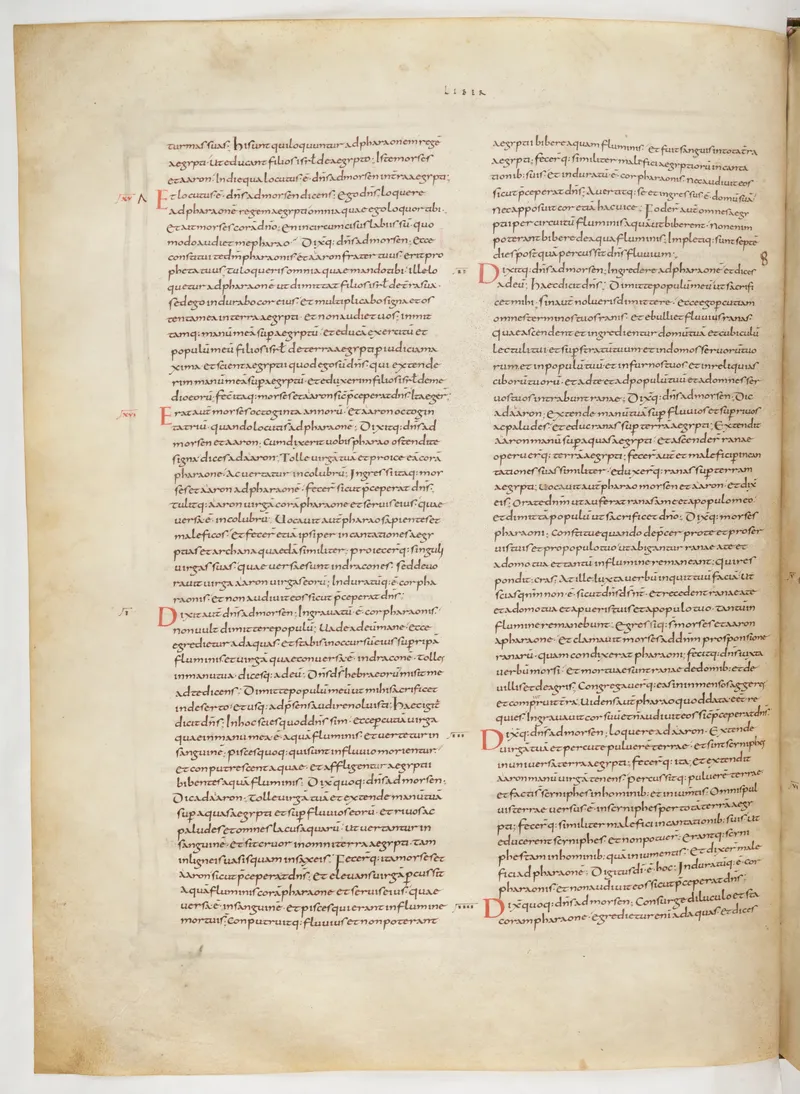 LIBER
turmas suas; Hi sunt qui loquuntur ad pharaonem regē
aegypti· ut educant filios isrl de aegypto; Iste moyses
et aaron· in die qua locutus ē· dñs ad moysen in terra aegypti;
XV Et locutus ē· dñs ad moysen dicens; Ego dñs loquere
ad pharaonē regem aegypti omnia quae ego loquor tibi·
Et ait moyses corā dño; En incircumcisus labiis sū· quo
modo audiet me pharao; Dixitq; dñs ad moysen; Ecce
constitui te dm̄ pharaonis et aaron frater tuus erit pro
pheta tuus· tu loqueris omnia quae mando tibi· ille lo
quetur ad pharaonē ut dimittat filios isrl de terra sua·
sed ego indurabo cor eius· et multiplicabo signa et os
tenta mea in terra aegypti· et non audiet uos; inmit
tamq; manū meā sup aegyptū· et educā exercitū et
populū meū filios isrl de terra aegypti p iudicia ma
xima· et scient aegyptii quod ego sū dñs· qui extende
rim manū meā sup aegyptū· et eduxerim filios isrl de me
dio eorū; fecit itaq; moyses et aaron sic p̄ceperat dñs· ita eger;
XVI Erat aut̄ moyses octoginta annorū· et aaron octogin
ta triū· quando locuti s̄ ad pharaonē; Dixitq; dñs ad
moysen et aaron; Cum dixerit uobis pharao ostendite
signa· dices ad aaron; Tolle uirgā tuā et proice eā corā
pharaone· ac uertatur in colubrū; Ingressi itaq; moy
ses et aaron ad pharaonē· fecer̄ sicut p̄ceperat dñs;
tulitq; aaron uirgā corā pharaone et seruis eius· quae
uersa ē· in colubrū; Uocauit aut̄ pharao sapientes et
maleficos· et fecer̄ etiā ipsi per incantationes aegy
ptias et archana quaedā similiter; proiecer̄q; singuli
uirgas suas· quae uersae sunt in dracones; sed deuo
rauit uirga aaron uirgas eorū; Induratūq; ē· cor pha
raonis· et non audiuit eos sicut p̄ceperat dñs;
I Dixit aut̄ dñs ad moysen; Ingrauatū ē· cor pharaonis·
non uult dimittere populū; Uade ad eū mane· ecce
egredietur ad aquas· et stabis in occursū eius sup ripā
fluminis· et uirga quae conuersa ē· in dracone· tolles
in manu tua· dicesq; ad eū; Dñs ds hebraeorū misit me
ad te dicens; Dimitte populū meū ut mihi sacrificet
in deserto· et usq; ad p̄sens audire noluisti; Haec igit̄
dicit dñs; In hoc scies quod dñs sim· ecce pcutiā uirga
quae in manu mea ē· aquā fluminis· et uertetur in
sanguinē· pisces quoq; qui sunt in fluuio morientur·
et conputrescent aquae· et affligentur aegyptii
bibentes aquā fluminis; Dixit quoq; dñs ad moysen;
Dic ad aaron; Tolle uirgā tuā et extende manū tuā
sup aquas aegypti· et sup fluuios eorū· et riuos ac
paludes et omnes lacus aquarū· ut uertantur in
sanguinē· et sit cruor in omni terra aegypti· tam
in ligneis uasis quam in saxeis; Fecer̄q; ita moyses et
aaron sicut p̄ceperat dñs· et eleuans uirgā pcussit
aquā fluminis corā pharaone et seruis eius· quae
uersa ē· in sanguinē· et pisces qui erant in flumine
mortui s̄; Conputruitq; fluuius et non poterant
aegyptii bibere aquam fluminis· et fuit sanguis in tota trā
aegypti; fecer̄q; similiter malefici aegyptiorū incanta
tionib; suis· et induratū ē· cor pharaonis· nec audiuit eos
sicut p̄ceperat dñs; Auertitq; se et ingressus ē· domū suā
nec apposuit cor etiā hac uice; Foder̄ aut̄ omnes aegy
ptii per circuitū fluminis aquā ut biberent· non enim
poterant bibere de aqua fluminis; Impletiq; sunt septē
dies posteaquā percussit dñs fluuium; 8
II Dixitq; dñs ad moysen; Ingredere ad pharaonē et dices
ad eū; haec dicit dñs; Dimitte populū meū ut sacrifi
cet mihi; sin aut̄ nolueris dimittere· ecce ego pcutiam
omnes terminos tuos ranis· et ebulliet fluuius ranas·
quae ascendent et ingredientur domū tuā et cubiculū
lectuli tui et sup stratū tuum et in domos seruorū tuo
rum· et in populū tuū et in furnos tuos et in reliquias
ciborū tuorū· et ad te et ad populū tuū et ad omnes ser
uos tuos intrabunt ranae; Dixitq; dñs ad moysen; Dic
ad aaron; Extende manū tuā sup fluuios et sup riuos
ac paludes· et educ ranas sup terrā aegypti; Extendit
aaron manū sup aquas aegypti· et ascender̄ ranae
operuer̄q; terrā aegypti; fecer̄ aut̄ et malefici p incan
tationes suas similiter· eduxer̄q; ranas sup terram
aegypti; Uocauit aut̄ pharao moysen et aaron· et dix̄
eis; Orate dnm ut auferat ranas a me et a populo meo·
et dimittā populū ut sacrificet dño; Dixitq; moyses
pharaoni; Constitue quando dep̄cer pro te et pro ser
uis tuis et pro populo tuo· ut abigantur ranae a te et
a domo tua· et tantū in flumine remaneant; qui res
pondit; cras; At ille· iuxta uerbū inquit tuū faciā· ut
scias qm̄ non ē· sicut dñs ds nr̄· et recedent ranae a te
et a domo tua· et a pueris tuis et a populo tuo· tantū in
flumine remanebunt; Egressiq; s̄ moyses et aaron
a pharaone· et clamauit moyses ad dnm pro sponsione
ranarū· quam condixerat pharaoni; fecitq; dñs iuxta
uerbū moysi· et mortuae sunt ranae de domib; et de
uillis et de agris; Congregauer̄q; eas in inmensos aggeres
et computruit trā; Uidens aut̄ pharao quod data eēt re
quies· Ingrauauit cor suū et n̄ audiuit eos sic p̄ceperat dñs;
III Dixitq; dñs ad moysen; Loquere ad aaron; Extende
uirgā tuā et percute puluerē terrae· et sint scyniphes
in uniuersa terra aegypti; fecer̄q; ita· et extendit
aaron manū uirgā tenens· percussitq; puluerē terrae
et facti s̄ scyniphes in hominib; et in iumentis· Omnis pul
uis terrae uersus ē· in scyniphes per totā terrā aegy
pti; fecer̄q; similiter malefici incantationib; suis· ut
educerent scyniphes· et non potuer̄; erantq; scyni
phes tam in hominib; quā in iumentis· Et dixer̄ male
fici ad pharaonē; Digitus dī ē· hoc; Induratūq; ē· cor
pharaonis et non audiuit eos sicut p̄ceperat dñs;
IIII Dixit quoq; dñs ad moysen; Consurge diluculo et sta
coram pharaone· egredietur enī ad aquas· et dices